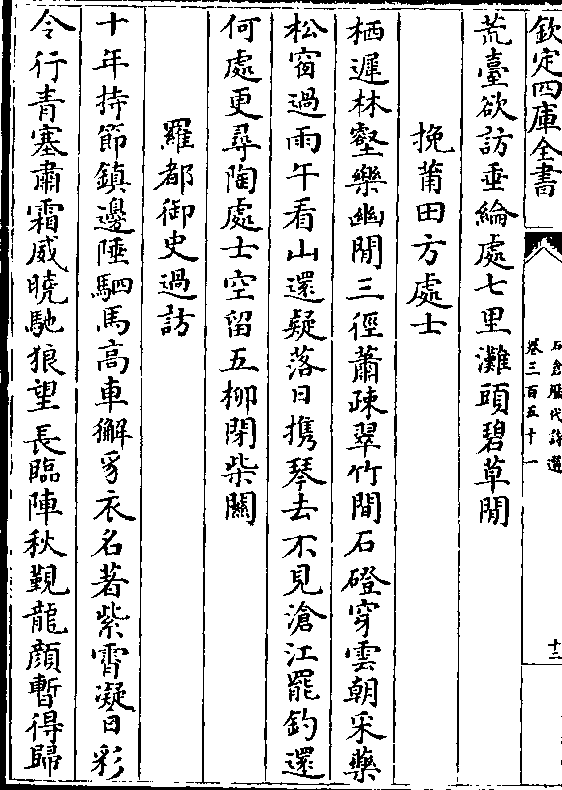 欽定四庫全書
石倉歷代詩選
卷三百五十一
十二
荒臺欲訪垂綸處七里灘頭碧草閒
挽莆田方處士
栖遲林壑樂幽閒三徑蕭疎翠竹間石磴穿雲朝采藥
松窗過雨午看山還疑落日携琴去不見滄江罷釣還
何處更尋陶處士空留五柳閉柴關
羅都御史過訪
十年持節鎮邊陲駟馬高車獬豸衣名著紫霄凝日彩
令行青塞肅霜威曉馳狼望長臨陣秋覲龍顔暫得歸